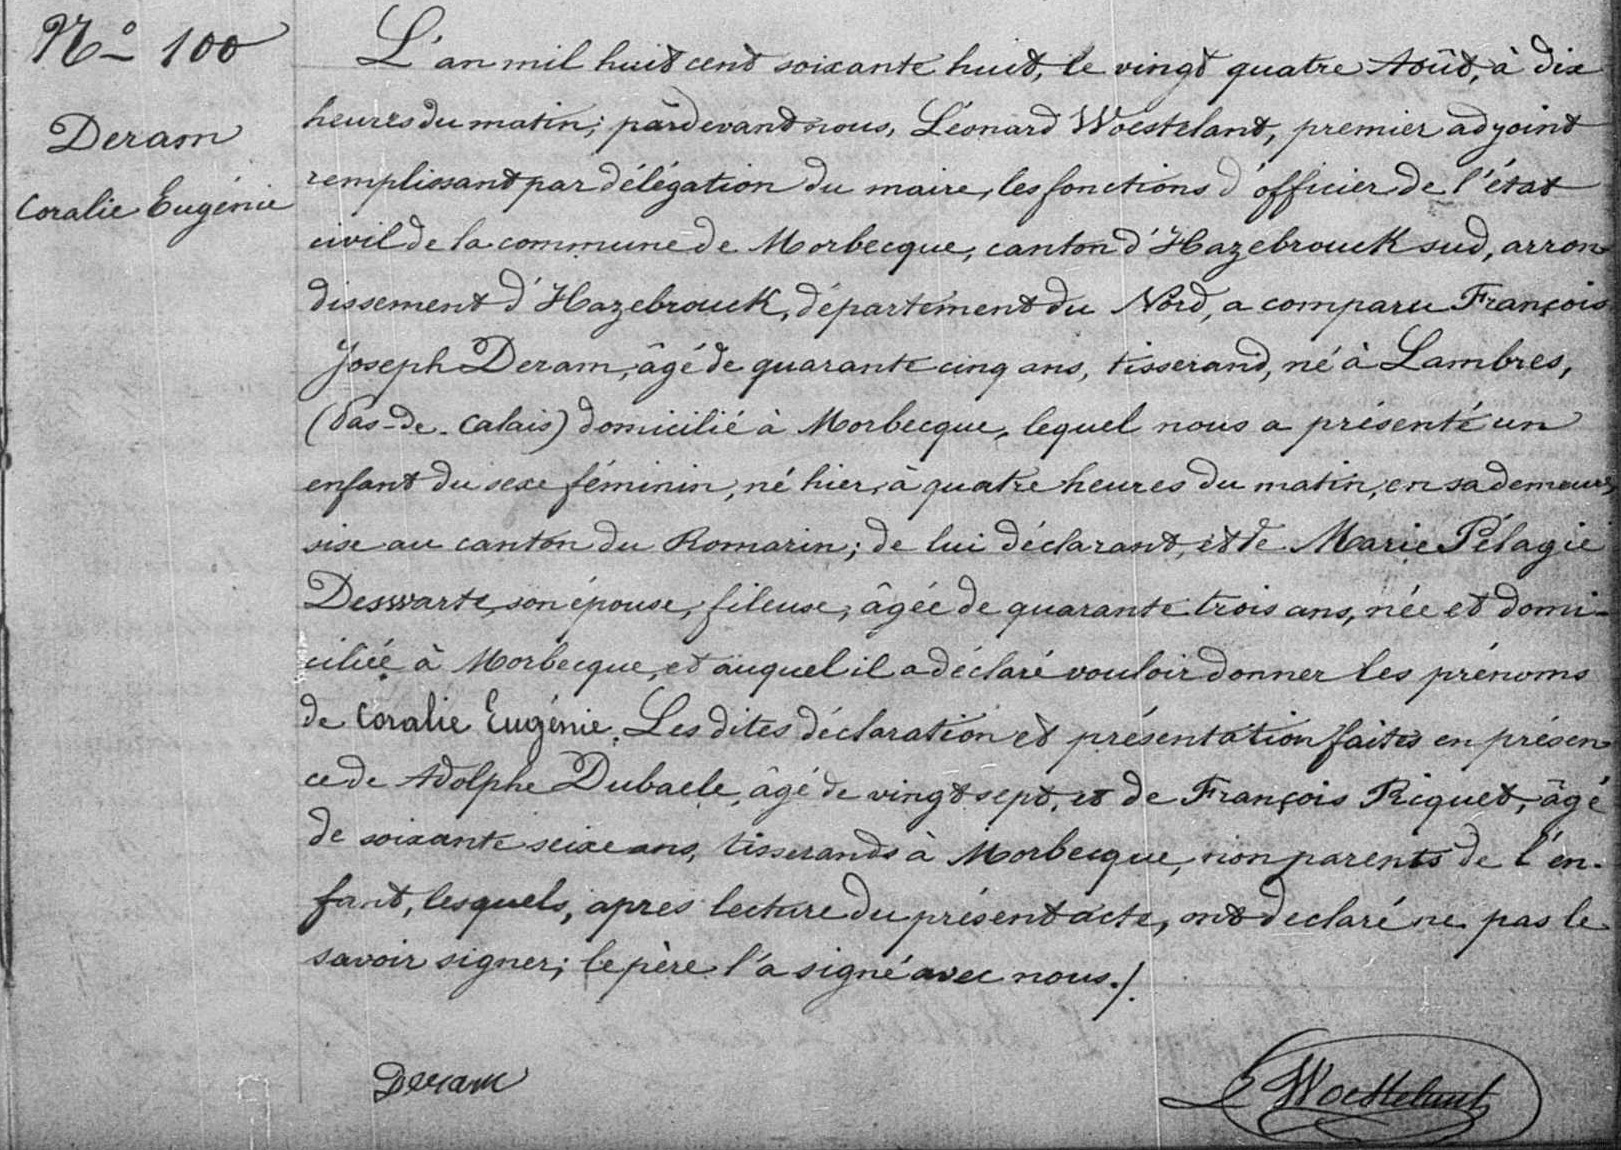 N° 100
Deram
Coralie Eugénie
L'an mil huit cent soixante huit, le vingt quatre Août, à dix
heures du matin; pardevant nous, Léonard Woestelant, premier adjoint
remplissant par délégation du maire, les fonctions d'officier de l'état
civil de la commune de Morbecque, canton d'Hazebrouck sud, arron
dissement d'Hazebrouck, département du Nord, a comparu François
Joseph Deram, âgé de quarante cinq ans, tisserand, né à Lambres,
(Pas-de-Calais) domicilié à Morbecque, lequel nous a présenté un
enfant du sexe féminin, né hier, à quatre heures du matin, en sa demeure,
sise au canton du Romarin; de lui déclarant, et de Marie Pélagie
Deswarte, son épouse, fileuse, âgée de quarante trois ans, née et domi-
ciliée à Morbecque, et auquel il a déclaré vouloir donner les prénoms
de Coralie Eugénie. Les dites déclaration et présentation faites en présen
ce de Adolphe Dubaele, âgé de vingt sept, et de François Riquet, âgé
de soixante seize ans, tisserands à Morbecque, non parents de l'en-
fant, lesquels, apres lecture du présent acte, ont declaré ne pas le
savoir signer; le père l'a signé avec nous./.
Deram
L Woestelant